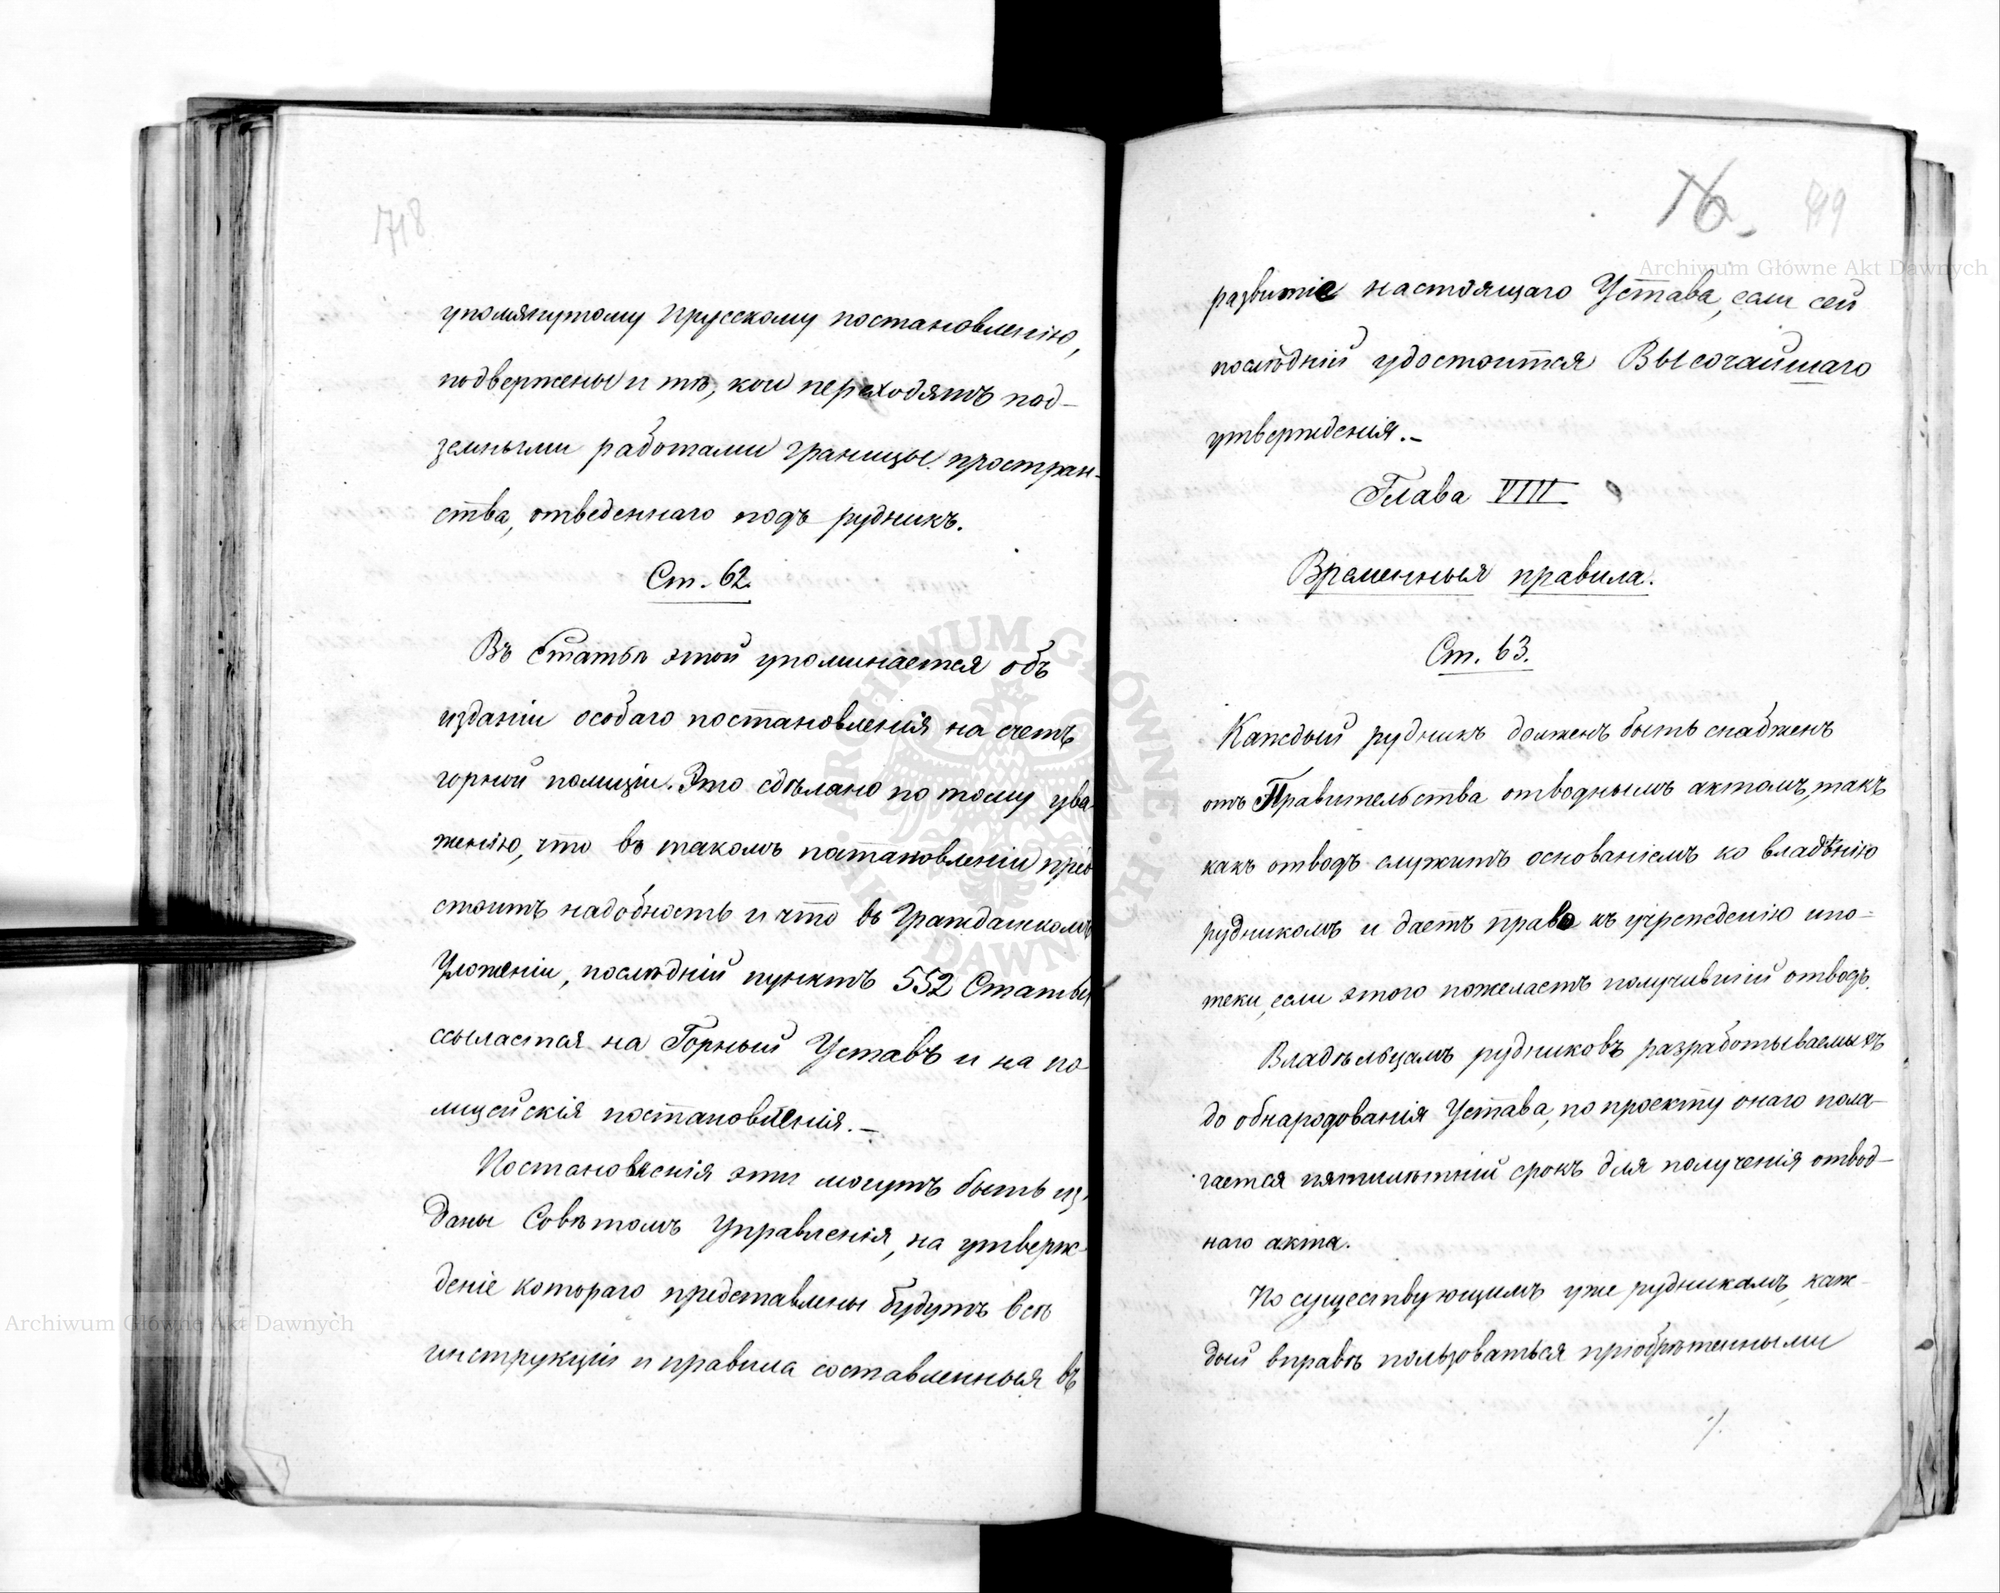 718
упомянутому Прусскому постановленію,
подвержены и тѣ, кои переходятъ под-
земными работами границы простран-
ства, отведеннаго подъ рудникъ.
Ст. 62.
Въ Статьѣ этой упоминается объ
изданіи особаго постановленія на счетъ
горной полиціи. Это сдѣлано по тому ува-
женію, что въ такомъ патановленіи пред
стоитъ надобность и что въ Гражданскомъ
Уложеніи, послѣдній пунктъ 552 Статьи
ссылается на Горный Уставъ и на по
лицейскія постановленія.–
Постановленія эти могутъ быть из-
даны Совѣтомъ Управленія, на утверж-
деніе котораго представлены будутъ всѣ
инструкціи и правила составленныя въ
76. 719
развитіе настоящаго Устава, если сей
послѣдній удостоится Высочайшаго
утвержденія.–
Глава VIII
Временныя правила.
Ст. 63.
Каждый рудникъ долженъ быть снабженъ
отъ Правительства отводнымъ актомъ, такъ
какъ отводъ служитъ основаніемъ ко владѣнію
рудникомъ и даетъ право къ учрежденію ипо-
теки, если этого пожелаетъ получившій отводъ.
Владѣльцамъ рудниковъ разработываемыхъ
до обнародованія Устава, по проекту онаго пола-
гается пятилѣтній срокъ для полученія отвод-
наго акта.
По существующимъ уже рудникамъ, каж-
дый вправѣ пользоваться пріобрѣтенными
./.
Archiwum Główne Akt Dawnych
Archiwum Główne Akt Dawnych
ARCHIWUM GŁÓWNE AKT DAWNYCH